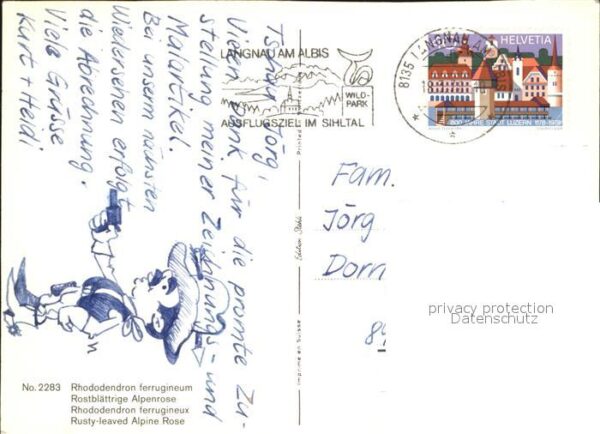 LANGNAU AM ALBIS
WILD-
PARK
AUSFLUGSZIEL IM SIHLTAL
8135 LANGNAU AM
HELVETIA
800 JAHRE STADT LUZERN 1178-1978
Tschau Jörg,
Vielen Dank für die promte Zu-
stellung meiner Zeichnungs- und
Malartikel.
Bei unserm nächsten
Wiedersehen erfolgt
die Abrechnung.
Viele Grüsse
Kurt Heidi
Fam.
Jörg
Dorn
Printed
Edition Stehli
Imprimé en Suisse
privacy protection
Datenschutz
No. 2283 Rhododendron ferrugineum
Rostblättrige Alpenrose
Rhododendron ferrugineux
Rusty-leaved Alpine Rose